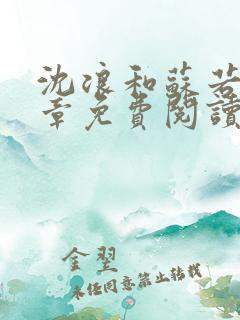 沈浪和蘇若
章免費閱讀
金翌
未任同意禁止轉載